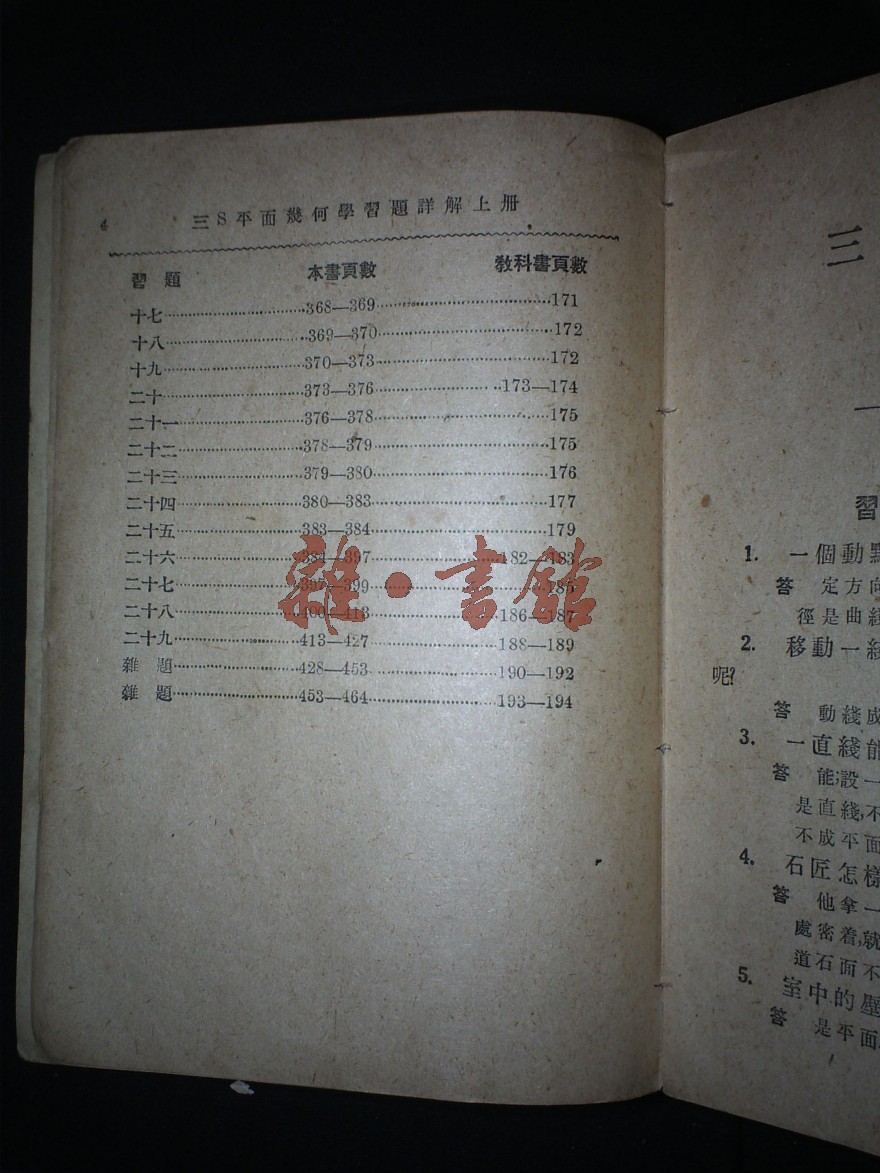 4 三S平面幾何學習題詳解上册
習題 本書頁數 敎科書頁數
十七 368—369 171
十八 369—370 172
十九 370—373 172
二十 373—376 173—174
二十一 376—378 175
二十二 378—379 175
二十三 379—380 176
二十四 380—383 177
二十五 383—384 179
二十六 384—397 182—183
二十七 397—399 185
二十八 400—413 186—187
二十九 413—427 188—189
雜題 428—453 190—192
雜題 453—464 193—194
雜·書館
三
一
習
1. 一個動點
答 定方向
徑是曲綫
2. 移動一綫
呢?
答 動綫成
3. 一直綫能
答 能;設一
是直綫,不
不成平面
4. 石匠怎樣
答 他拿一
處密着,就
道石面不
5. 室中的壁
答 是平面